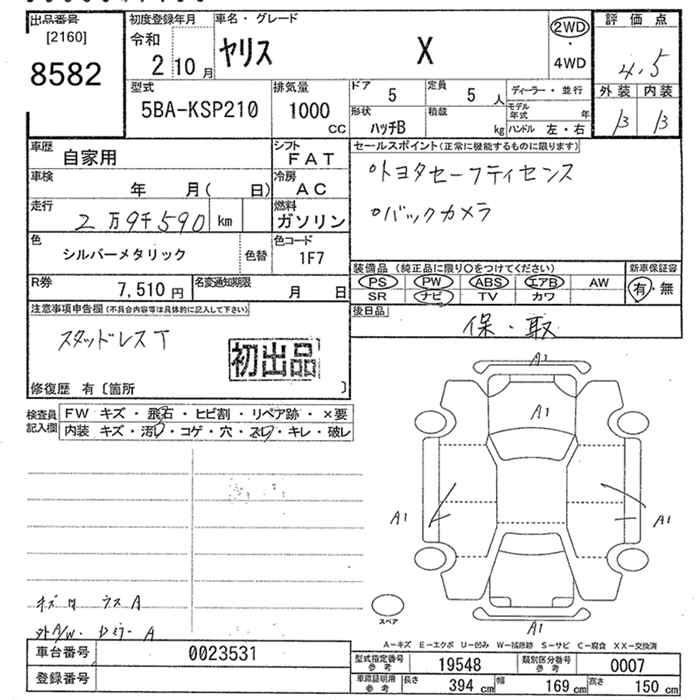 出品番号
[2160]
8582
初度登録年月
令和
2 10 月
車名・グレード
ヤリス X
2WD
・
4WD
評価点
4.5
外装 内装
B B
型式
5BA-KSP210
排気量
1000
CC
ドア 5
定員 5 人
形状 ハッチB
積載 kg
ディーラー・並行
モデル年式 年
ハンドル 左・右
車歴 自家用
シフト FAT
車検 年 月( 日)
冷房 AC
走行 2万9千590 km
燃料 ガソリン
色 シルバーメタリック
色替
色コード 1F7
R券 7,510 円
名変通知期限 月 日
セールスポイント(正常に機能するものに限ります)
○トヨタセーフティセンス
○バックカメラ
装備品 (純正品に限り○をつけてください)
PS PW ABS エアB AW
SR ナビ TV カワ
新車保証書
有・無
後日品
保・取
注意事項申告欄(不具合内容等は具体的に記入して下さい)
スタッドレスT
初出品
修復歴 有〔箇所 〕
検査員記入欄
FW キズ・飛石・ヒビ割・リペア跡・×要
内装 キズ・汚・コゲ・穴・スレ・キレ・破レ
A1
A1
A1
A1
A1
スペア
A-キズ E-エクボ U-凹み W-補修跡 S-サビ C-腐食 XX-交換済
車台番号 0023531
登録番号
型式指定番号参考 19548
類別区分番号参考 0007
車庫証明用参考 長さ 394 cm 幅 169 cm 高さ 150 cm